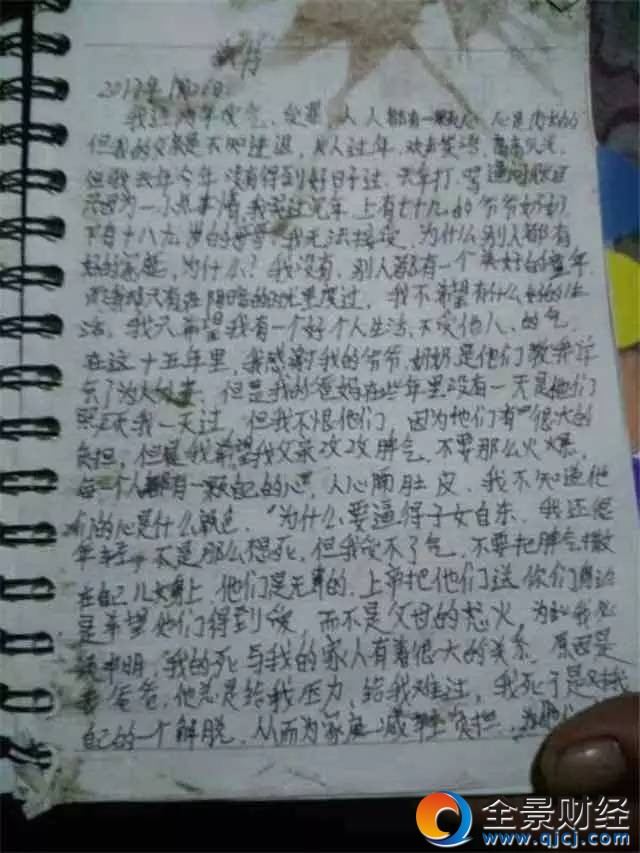 2017年1月26日
我这两年受气、受罪、人人都有一颗心、心是肉长的
但我的父亲是不知进退,别人过年,欢声笑语,高高兴兴,
但我去年今年没有得到好日子过,天天打、骂
只因为一小点事情,我没过完年,上有七十九、的爷爷奶奶
下有十八九岁的哥哥,我无法接受,为什么别人都有
好的家庭,为什么?我没有,别人都有一个美好的童年
而我却只有在阴暗的 里度过,我不希望有什么好的生
活,我只希望我有一个好个人生活,不受他人、的气,
在这十五年里,我感谢我的爷爷、奶奶是他们教我学
会了为人处事,但是我的爸妈在些年里没有一天是他们
照顾我一天过,但我不恨他们,因为他们有很大的
负担,但是我希望我父亲改改脾气,不要那么火爆,
每一个人都有一颗自己的心,人心隔肚皮,我不知道他
们的心是什么颜色,为什么要逼得子女自杀,我还很
年轻,不是那么想死,但我受不了气,不要把脾气撒
在自己儿女身上,他们是无辜的,上帝把他们送你们身边
是希望他们得到爱,而不是父母的怒火,为此我
申明,我的死与我的家人有着很大的关系,原因是
爸爸,他总是给我压力,给我难过,我死了是对我
自己的一个解脱,从而为家庭减轻负担,
全景财经
www.qjcj.com